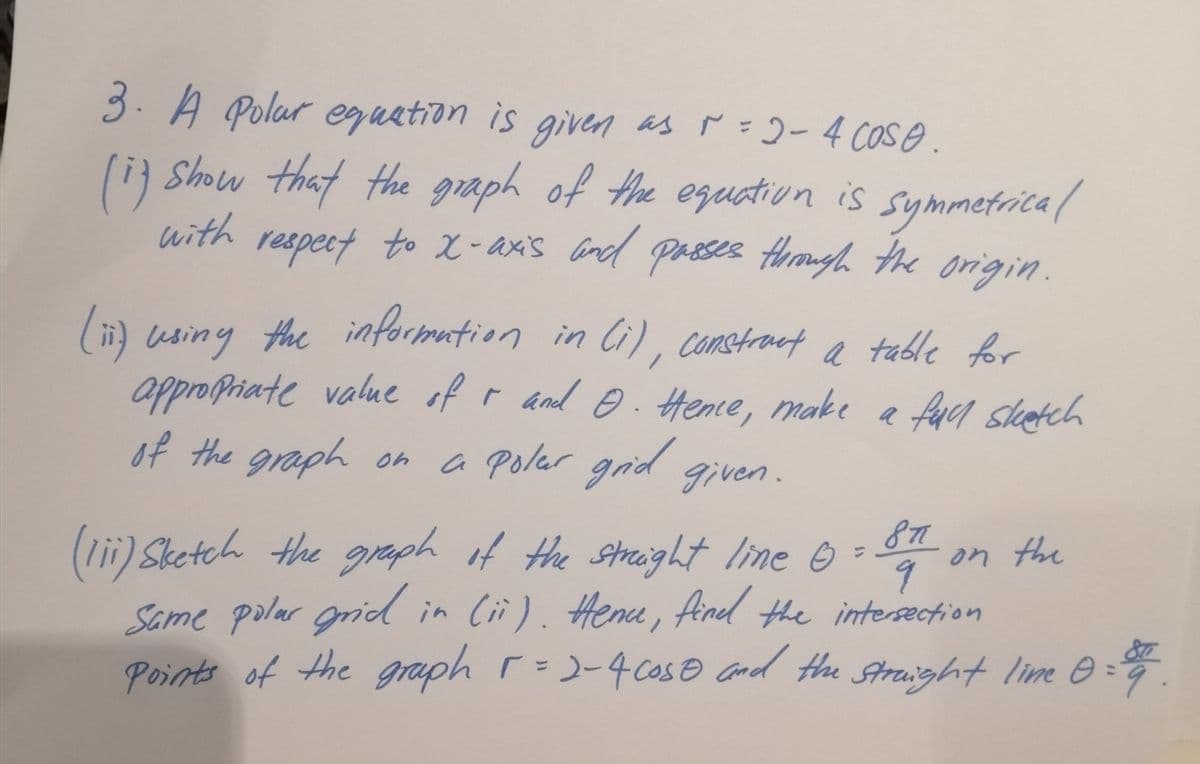 3. A Polar equation is given as r = 2 - 4 cosθ.
(i) Show that the graph of the equation is symmetrical
with respect to x-axis and passes through the origin.
(ii) using the information in (i), construct a table for
appropriate value of r and θ. Hence, make a full sketch
of the graph on a polar grid given.
(iii) Sketch the graph of the straight line θ = 8π/9 on the
Same polar grid in (ii). Hence, find the intersection
Points of the graph r = 2-4cosθ and the straight line θ = 8π/9.